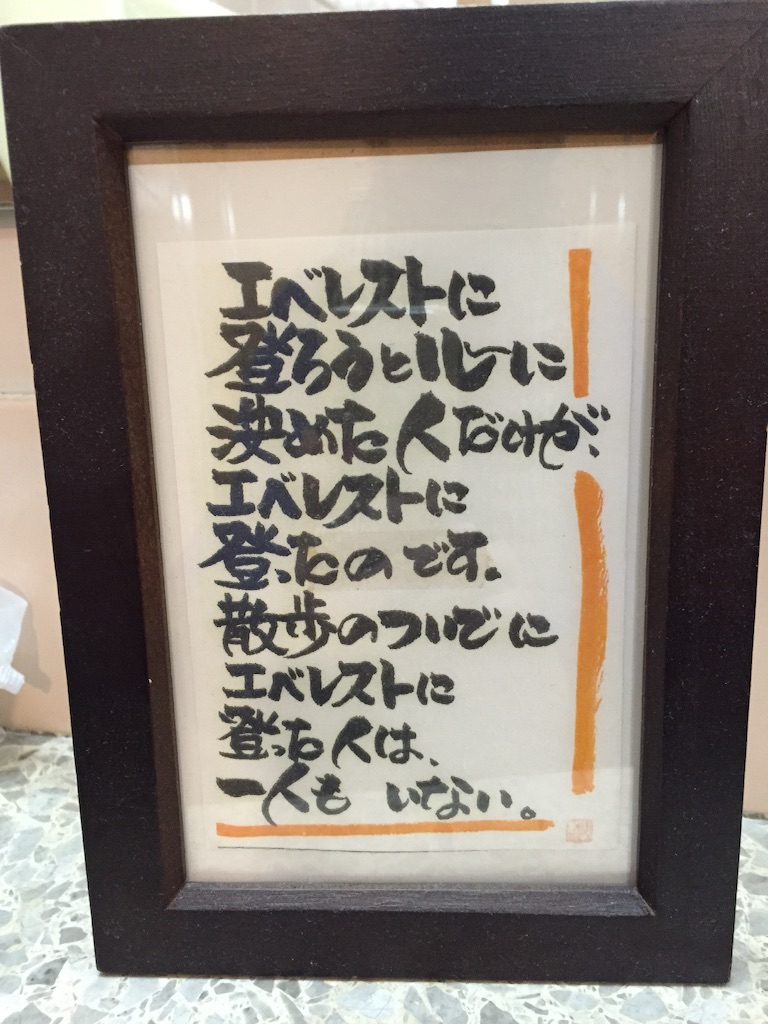 エベレストに
登ろうと心に
決めた人だけが、
エベレストに
登ったのです。
散歩のついでに
エベレストに
登った人は、
一人も いない。